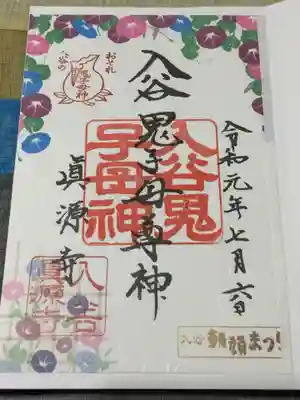 令和元年七月六日
入谷鬼子母尊神
眞源寺
おそれ
入谷の
鬼子母神
入谷鬼
子母神
入谷
眞源寺
入谷 朝顔まつり